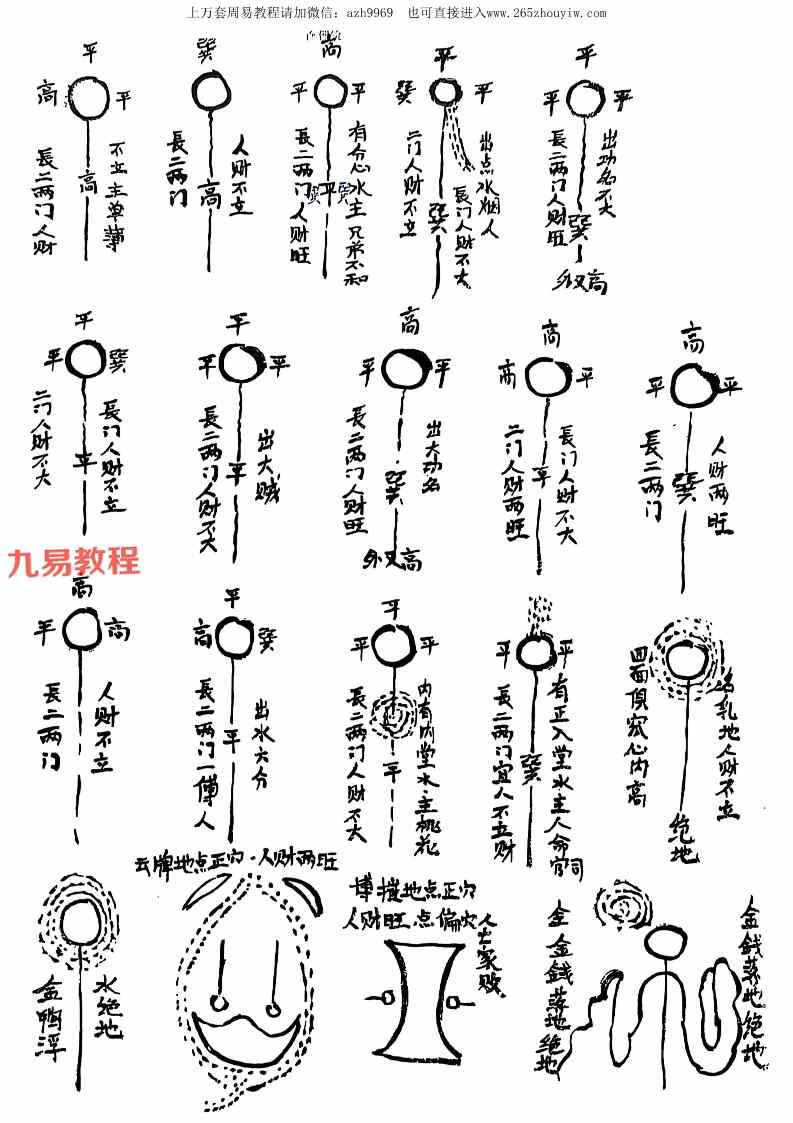 上万套周易教程请加微信：azh9969 也可直接进入www.265zhouyiw.com
平
高
平
高
不立主单薄
長二两门人财
巽
高
人财不立
長二两门
高
平
平
平
有分心水主兄弟不和
長二两门人财旺
平
巽
平
巽
出点水烟人
長门人财不大
二门人财不立
平
平
平
巽
出功名不大
長二两门人财旺
外又高
平
平
巽
平
長门人财不立
二门人财不大
平
平
平
平
出大贼
長二两门人财不大
高
平
平
巽
出大功名
長二两门人财旺
外又高
高
高
平
平
長门人财不大
二门人财两旺
高
平
平
巽
人财两旺
長二两门
九易教程
高
平
高
人财不立
長二两门
平
高
巽
平
出水六分
長二两门一傅人
平
平
平
平
内有内堂水·主桃花
長二两门人财不大
平
平
巽
有正入堂水主人命官司
長二两门宜人不立财
名乳地人财不立
四面 心内高
绝地
地点正穴·人财两旺
地点正穴
人财旺·点偏穴人亡家败
水绝地
金鴨浮
金
金錢落地绝地
金錢落地绝地